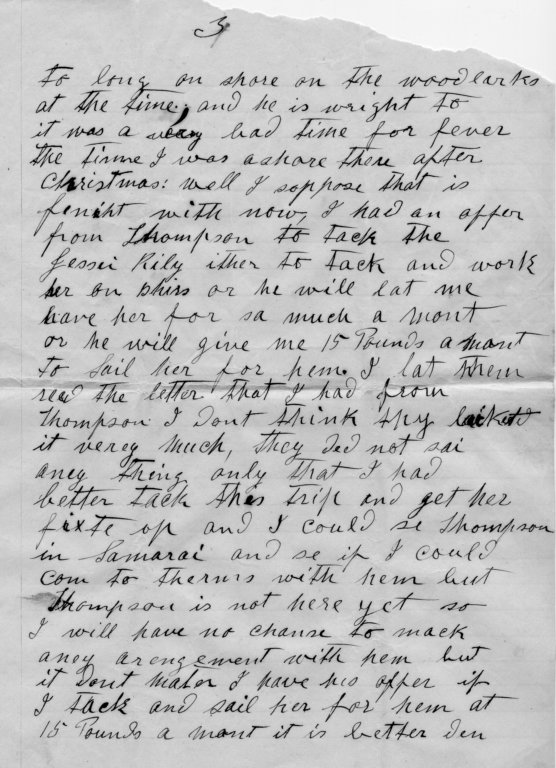 3
to long on shore on the woodlarks
at the time, and he is wright to
it was a veay bad time for fever
the time I was ashore there after
Christmas: well I soppose that is
fenisht with now, I had an offer
from Thompson to tack the
Jessei Rily ither to tack and work
her on shirs or he will lat me
have her for sa much a mont
or he will give me 15 Pounds a mant
to sail her for hem I lat them
read the letter that I had from
Thompson I Dont think thy laiked
it verey much, they Ded not sai
aney thing only that I had
better tack thes trip and get her
fixte op and I could se Thompson
in Samarai and se if I could
com to therms with hem but
Thompson is not here yet so
I will have no chanse to mack
aney arengement with hem but
it Dont mater I have his offer if
I tack and sail her for hem at
15 Pounds a mont it is better den